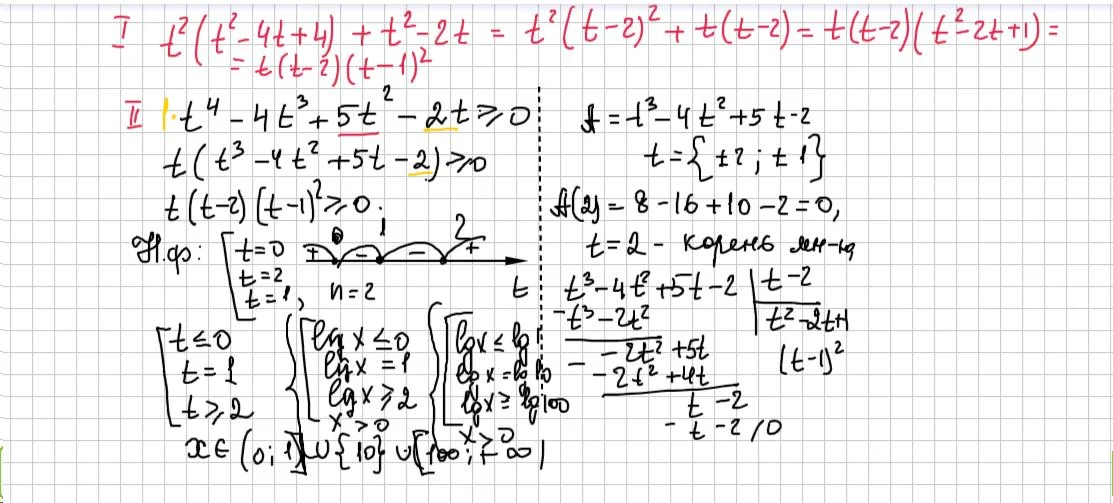 I t²(t²-4t+4) + t²-2t = t²(t-2)² + t(t-2) = t(t-2)(t²-2t+1) =
= t(t-2)(t-1)²
II 1·t⁴ - 4t³ + 5t² - 2t ⩾ 0
t(t³ - 4t² + 5t - 2) ⩾ 0
t(t-2)(t-1)² ⩾ 0;
Н.ф: [t=0
t=2
t=1,
0 1 2
+ - - +
n=2 t
[t ≤ 0
t = 1
t ⩾ 2
{[lg x ≤ 0
lg x = 1
lg x ⩾ 2
x > 0
{[lg x ≤ lg 1
lg x = lg 10
lg x ⩾ lg 100
x > 0
x ∈ (0; 1] ∪ {10} ∪ [100; +∞)
A = t³ - 4t² + 5t - 2
t = {±2; ±1}
A(2) = 8 - 16 + 10 - 2 = 0,
t = 2 - корень мн-на
t³ - 4t² + 5t - 2 | t - 2
- t³ - 2t² | t² - 2t + 1
- -2t² + 5t (t-1)²
-2t² + 4t
t - 2
- t - 2 / 0